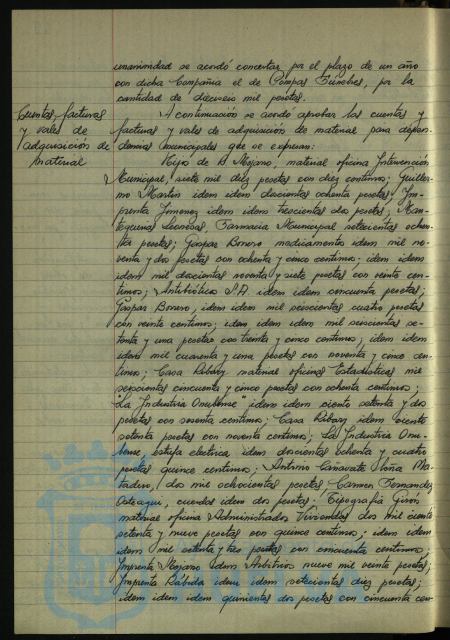 unanimidad se acordó concertar por el plazo de un año
con dicha Compañia el de Pompas Fúnebres, por la
cantidad de dieciseis mil pesetas.
Cuentas, facturas
y vales de
adquisición de
material
A continuación se acordó aprobar las cuentas y
facturas y vales de adquisición de material para depen-
dencias municipales que se expresan:
Hijo de B. Mojano, material oficina Intervención
Municipal, siete mil diez pesetas con diez centimos; Guiller-
mo Martin idem idem doscientas ochenta pesetas; Im-
prenta Jimenez idem idem trescientas dos pesetas; Man-
tequerias Leonesas, Farmacia Municipal setecientas ochen-
ta pesetas; Gaspar Bonero medicamentos idem mil no-
venta y dos pesetas con ochenta y cinco centimos; idem idem
idem mil doscientas noventa y siete pesetas con veinte cen-
timos; Antibióticos S.A. idem idem cincuenta pesetas;
Gaspar Bonero, idem idem mil seiscientas cuatro pesetas
con veinte centimos; idem idem idem mil seiscientas se-
tenta y una pesetas con treinta y cinco centimos; idem idem
idem mil cuarenta y una pesetas con noventa y cinco cen-
timos; Casa Ribary material oficinas Estadisticas mil
seiscientas cincuenta y cinco pesetas con ochenta centimos;
"La Industria Onubense" idem idem ciento setenta y dos
pesetas con sesenta centimos; Casa Ribary idem ciento
setenta pesetas con noventa centimos; La Industria Onu-
bense, estufa electrica, idem doscientas ochenta y cuatro
pesetas quince centimos; Antonio Canavate Ma-
tadero, dos mil ochocientas pesetas Carmen Fernandez
cuerdas idem dos pesetas. Tipografia Girón
material oficina Administrador Viviendas dos mil ciento
setenta y nueve pesetas con quince centimos; idem idem
idem mil setenta y tres pesetas con cincuenta centimos;
Imprenta Mojano idem Arbitrios nueve mil veinte pesetas;
Imprenta Rábida idem idem setecientas diez pesetas;
idem idem idem quinientas dos pesetas con cincuenta cen-